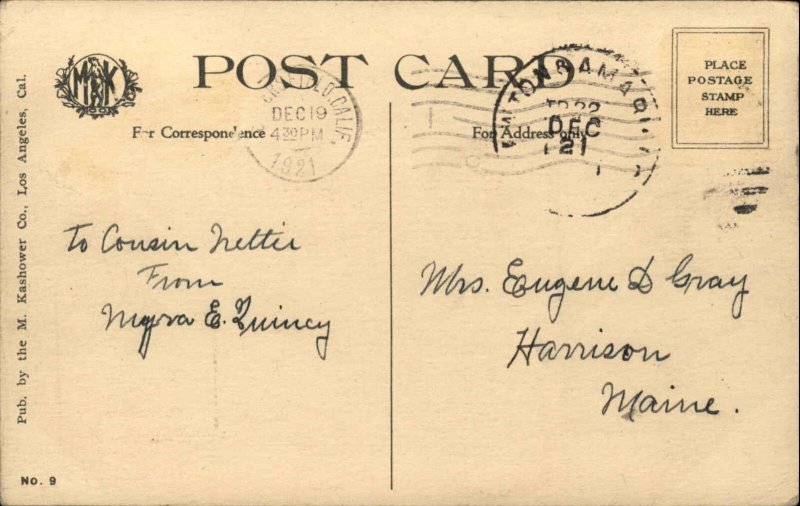 M K
POST CARD
PLACE
POSTAGE
STAMP
HERE
DEC 19
4 30 PM
1921
CALIF.
DEC
21
For Correspondence
For Address only
To Cousin Nettie
From
Myra E. Quincy
Mrs. Eugene D Gray
Harrison
Maine.
Pub. by the M. Kashower Co., Los Angeles, Cal.
No. 9